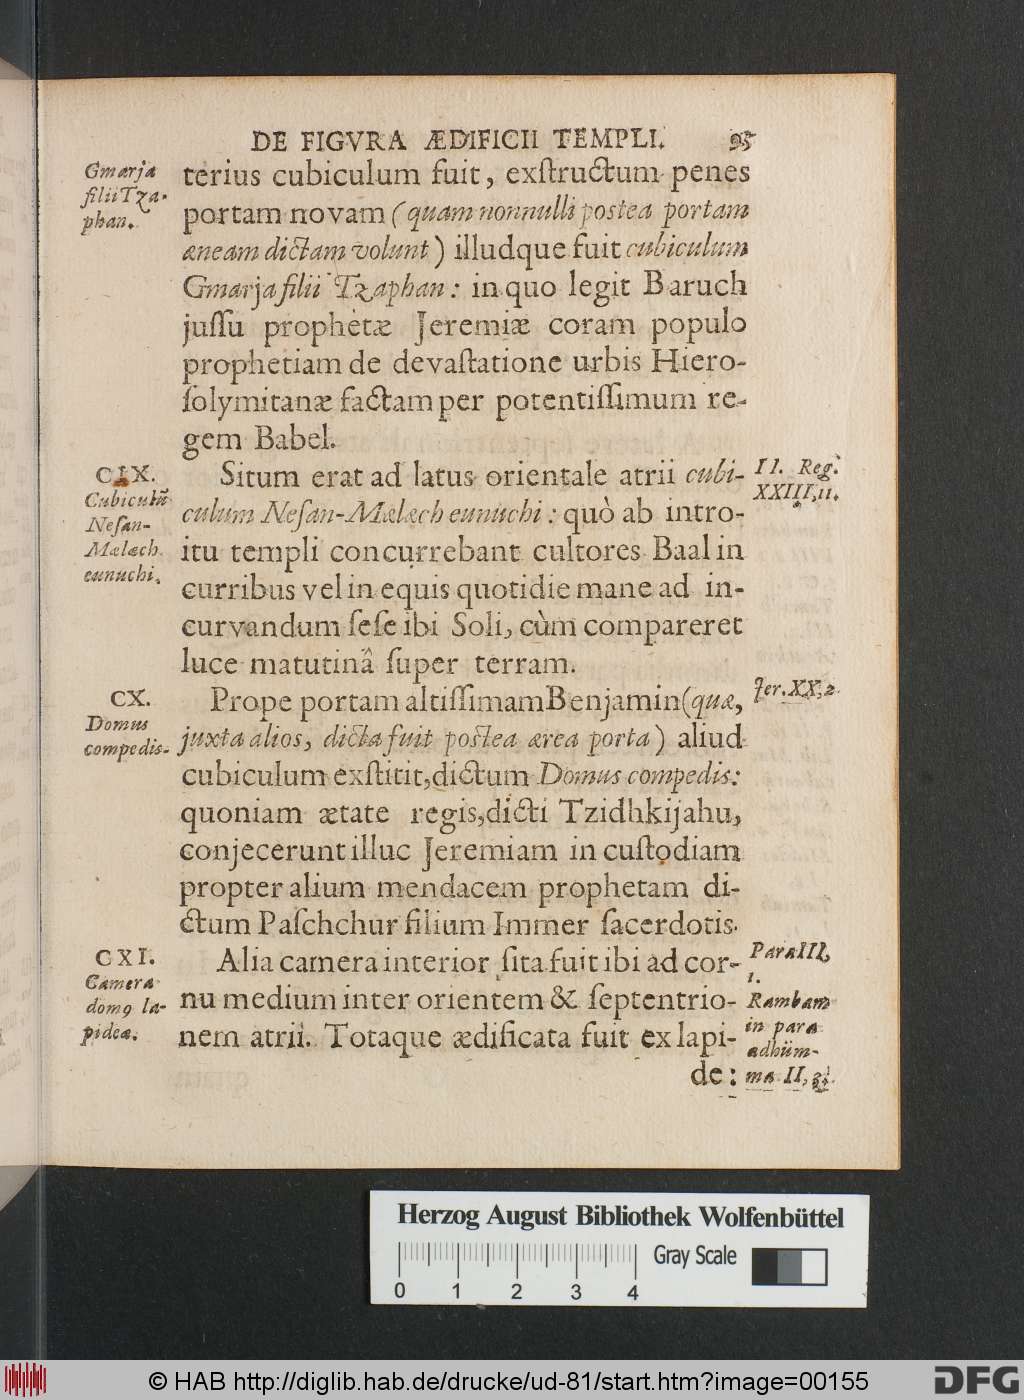 DE FIGVRA ÆDIFICII TEMPLI. 95
Gmarja
filii Tza-
phan.
terius cubiculum fuit, exſtructum penes
portam novam (quam nonnulli poſtea portam
æneam dictam volunt) illudque fuit cubiculum
Gmarja filii Tzaphan: in quo legit Baruch
juſſu prophetæ Jeremiæ coram populo
prophetiam de devaſtatione urbis Hiero-
ſolymitanæ factam per potentiſſimum re-
gem Babel.
CIX.
Cubiculũ
Neſan-
Mælæch
eunuchi.
Situm erat ad latus orientale atrii cubi-
culum Neſan-Mælæch eunuchi: quò ab intro-
itu templi concurrebant cultores Baal in
curribus vel in equis quotidie mane ad in-
curvandum ſeſe ibi Soli, cùm compareret
luce matutinâ ſuper terram.
II. Reg.
XXIII, 11.
CX.
Domus
compedis.
Prope portam altiſſimam Benjamin (quæ,
juxta alios, dicta fuit poſtea ærea porta) aliud
cubiculum exſtitit, dictum Domus compedis:
quoniam ætate regis, dicti Tzidhkijahu,
conjecerunt illuc Jeremiam in cuſtodiam
propter alium mendacem prophetam di-
ctum Paſchchur filium Immer ſacerdotis.
Jer. XX, 2.
CXI.
Camera
domꝰ la-
pideæ.
Alia camera interior ſita fuit ibi ad cor-
nu medium inter orientem & ſeptentrio-
nem atrii. Totaque ædificata fuit ex lapi-
de:
Para III,
1.
Rambam
in para
adhüm-
ma II,
Herzog August Bibliothek Wolfenbüttel
Gray Scale
0 1 2 3 4
© HAB http://diglib.hab.de/drucke/ud-81/start.htm?image=00155
DFG